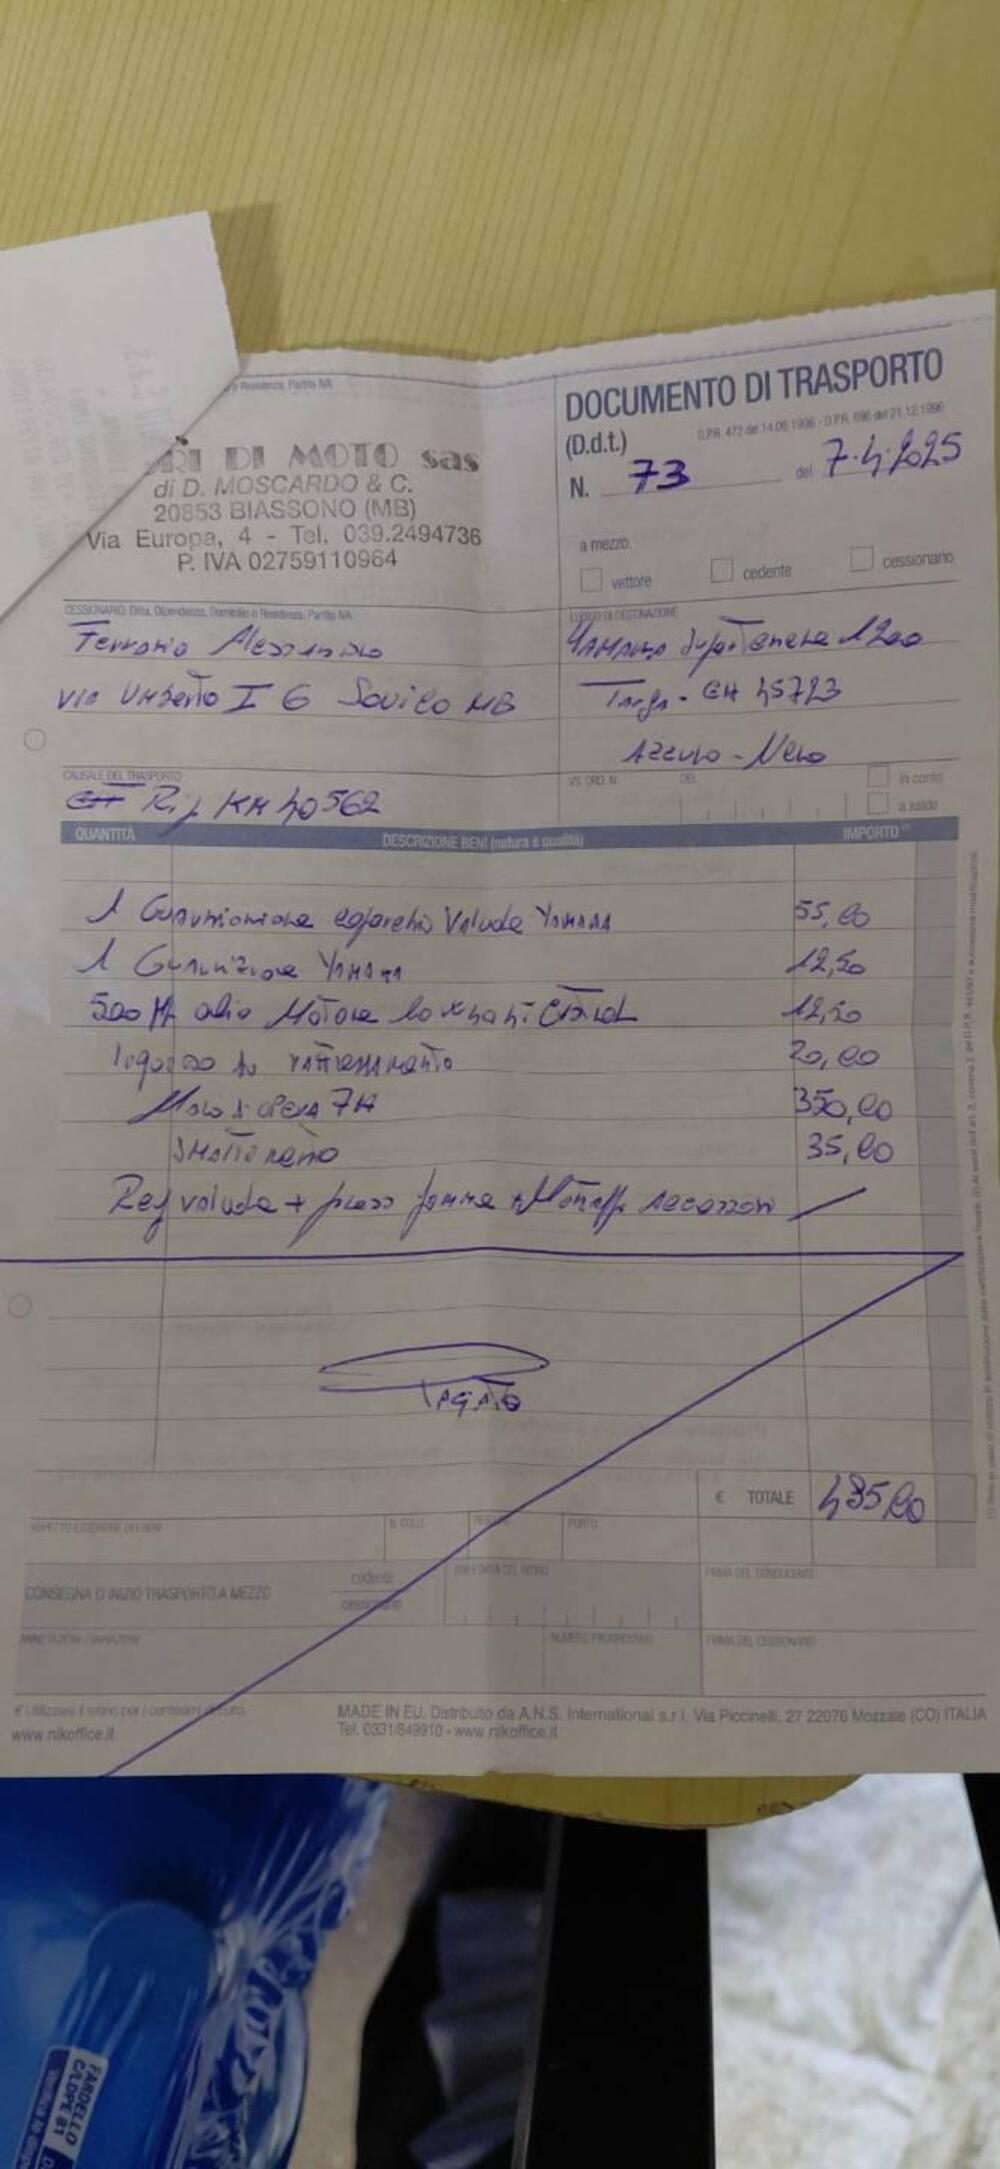 o Residenza, Partita IVA
RI DI MOTO sas
di D. MOSCARDO & C.
20853 BIASSONO (MB)
Via Europa, 4 - Tel. 039.2494736
P. IVA 02759110964
DOCUMENTO DI TRASPORTO
(D.d.t.)
D.P.R. 472 del 14.08.1996 - D.P.R. 696 del 21.12.1996
N. 73 del 7.4.2025
a mezzo:
vettore cedente cessionario
CESSIONARIO: Ditta, Dipendenza, Domicilio o Residenza, Partita IVA
Ferrario Alessandro
VIA UMBERTO I 6 Sovico MB
LUOGO DI DESTINAZIONE
YAMAHA SuperTenere 1200
Targa - EH 45723
AZZURO - Nero
CAUSALE DEL TRASPORTO
Rip KM 40562
VS. ORD. N. DEL
in conto
a saldo
QUANTITÀ DESCRIZIONE BENI (natura e qualità) IMPORTO
1 Guarnizione coperchio Valvole YAMAHA 55,00
1 Guarnizione YAMAHA 12,50
500 Ml olio Motore CASTROL 12,50
liquido di raffreddamento 20,00
Mano d'opera 7H 350,00
SMALTIMENTO 35,00
Reg valvole +
PAGATO
€ TOTALE 485,00
ASPETTO ESTERIORE DEI BENI N. COLLI PORTO
CONSEGNA O INIZIO TRASPORTO A MEZZO cedente cessionario
ORA E DATA DEL RITIRO
FIRMA DEL CONDUCENTE
ANNOTAZIONI - VARIAZIONI
NUMERO PROGRESSIVO
FIRMA DEL CESSIONARIO
€ Utilizzare il retino per i centesimi di Euro.
www.nikoffice.it
MADE IN EU. Distribuito da A.N.S. International s.r.l. Via Piccinelli, 27 22076 Mozzate (CO) ITALIA
Tel. 0331/849910 - www.nikoffice.it
FARDELLO